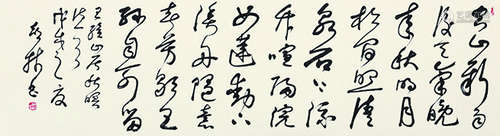 空山新雨
後天氣晚
來秋明月
松間照清
泉石上流
竹喧歸浣
女蓮動下
漁舟隨意
春芳歇王
孫自可留
王維山居秋暝
戊戌之夏